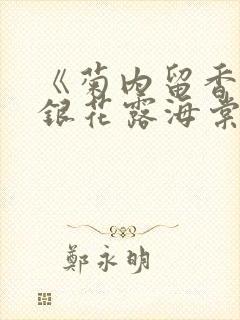 《菊内留香
銀花露海棠
鄭永明